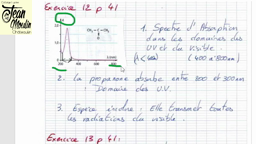 Jean
Moulin
Exercice 12 p 41
1. Spectre d'Absorption
dans les domaines des
UV et du visible.
(λ < 400) (400 à 800nm)
2. La propanone absorbe entre 200 et 300nm
Domaine des UV.
3. Espèce incolore : Elle transmet toutes
les radiations du visible.
Exercice 13 p 41: